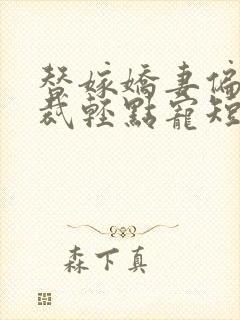 替嫁嬌妻偏
裁輕點寵短
森下真